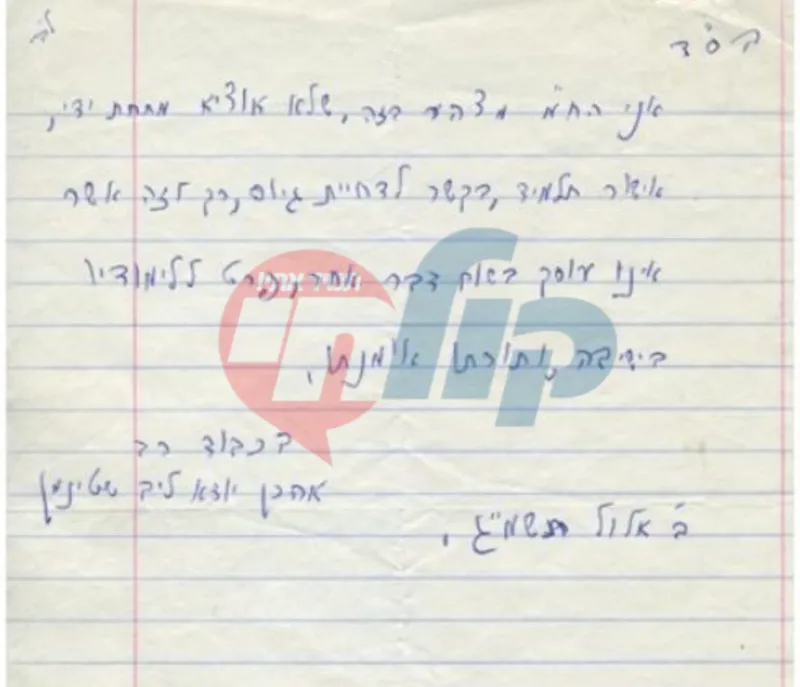 ב"ס ד
אני הח"מ מצהיר בזה, שלא אוציא מתחת ידי,
אישור תלמיד, בקשר לדחיית גיוס, רק לזה אשר
אינו עוסק בשום דבר אחר, פרט ללימודיו
בישיבה ותורתו אומנתו.
בכבוד רב
אהרן יודא ליב שטינמן
ב' אלול תשמ"ג.
תמיד אתך!
קול חי